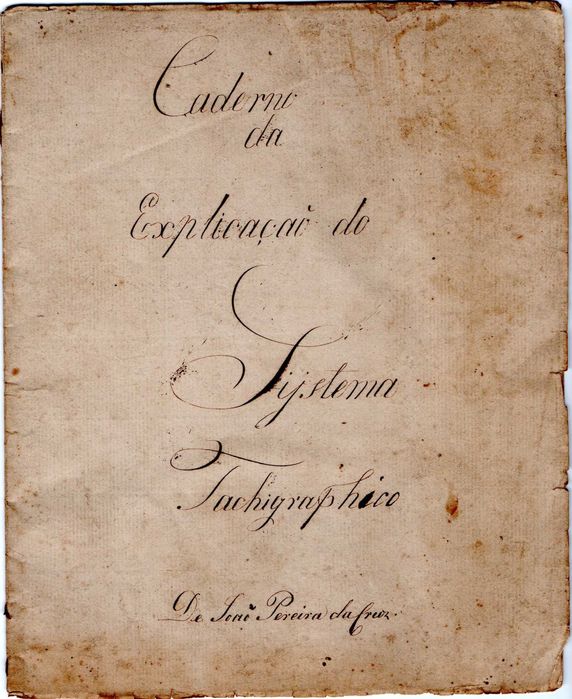 Caderno
da
Explicaçaõ do
Sijstema
Tachigraphico
De Joaõ Pereira da Cruz